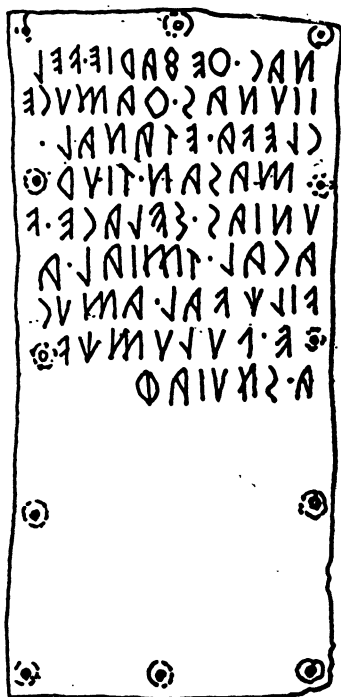 𐌍𐌀𐌂·𐌈𐌄𐌚𐌀𐌓𐌉𐌄·𐌅𐌄𐌋
𐌉𐌉𐌖𐌍𐌀𐌔·𐌈𐌀𐌌𐌖𐌂𐌄
𐌂𐌋𐌄𐌅𐌀·𐌄𐌕𐌀𐌍𐌀𐌋·
𐌌𐌀𐌔𐌀𐌍·𐌕𐌉𐌖𐌓
𐌖𐌍𐌉𐌀𐌔·𐌔𐌄𐌋𐌀𐌂𐌄·𐌅
𐌀𐌂𐌀𐌋·𐌕𐌌𐌉𐌀𐌋·𐌀
𐌅𐌉𐌋𐌙𐌅𐌀𐌋·𐌀𐌌𐌖𐌂
𐌄·𐌐𐌖𐌋𐌖𐌌𐌙𐌅
𐌀·𐌔𐌍𐌖𐌉𐌀𐌘